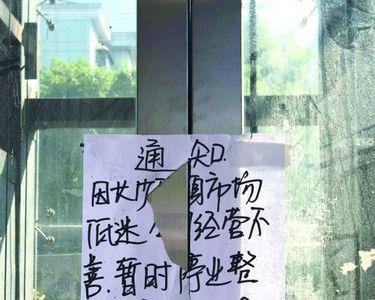 通知
因女 市场
低迷 经营不
善.暂时停业整